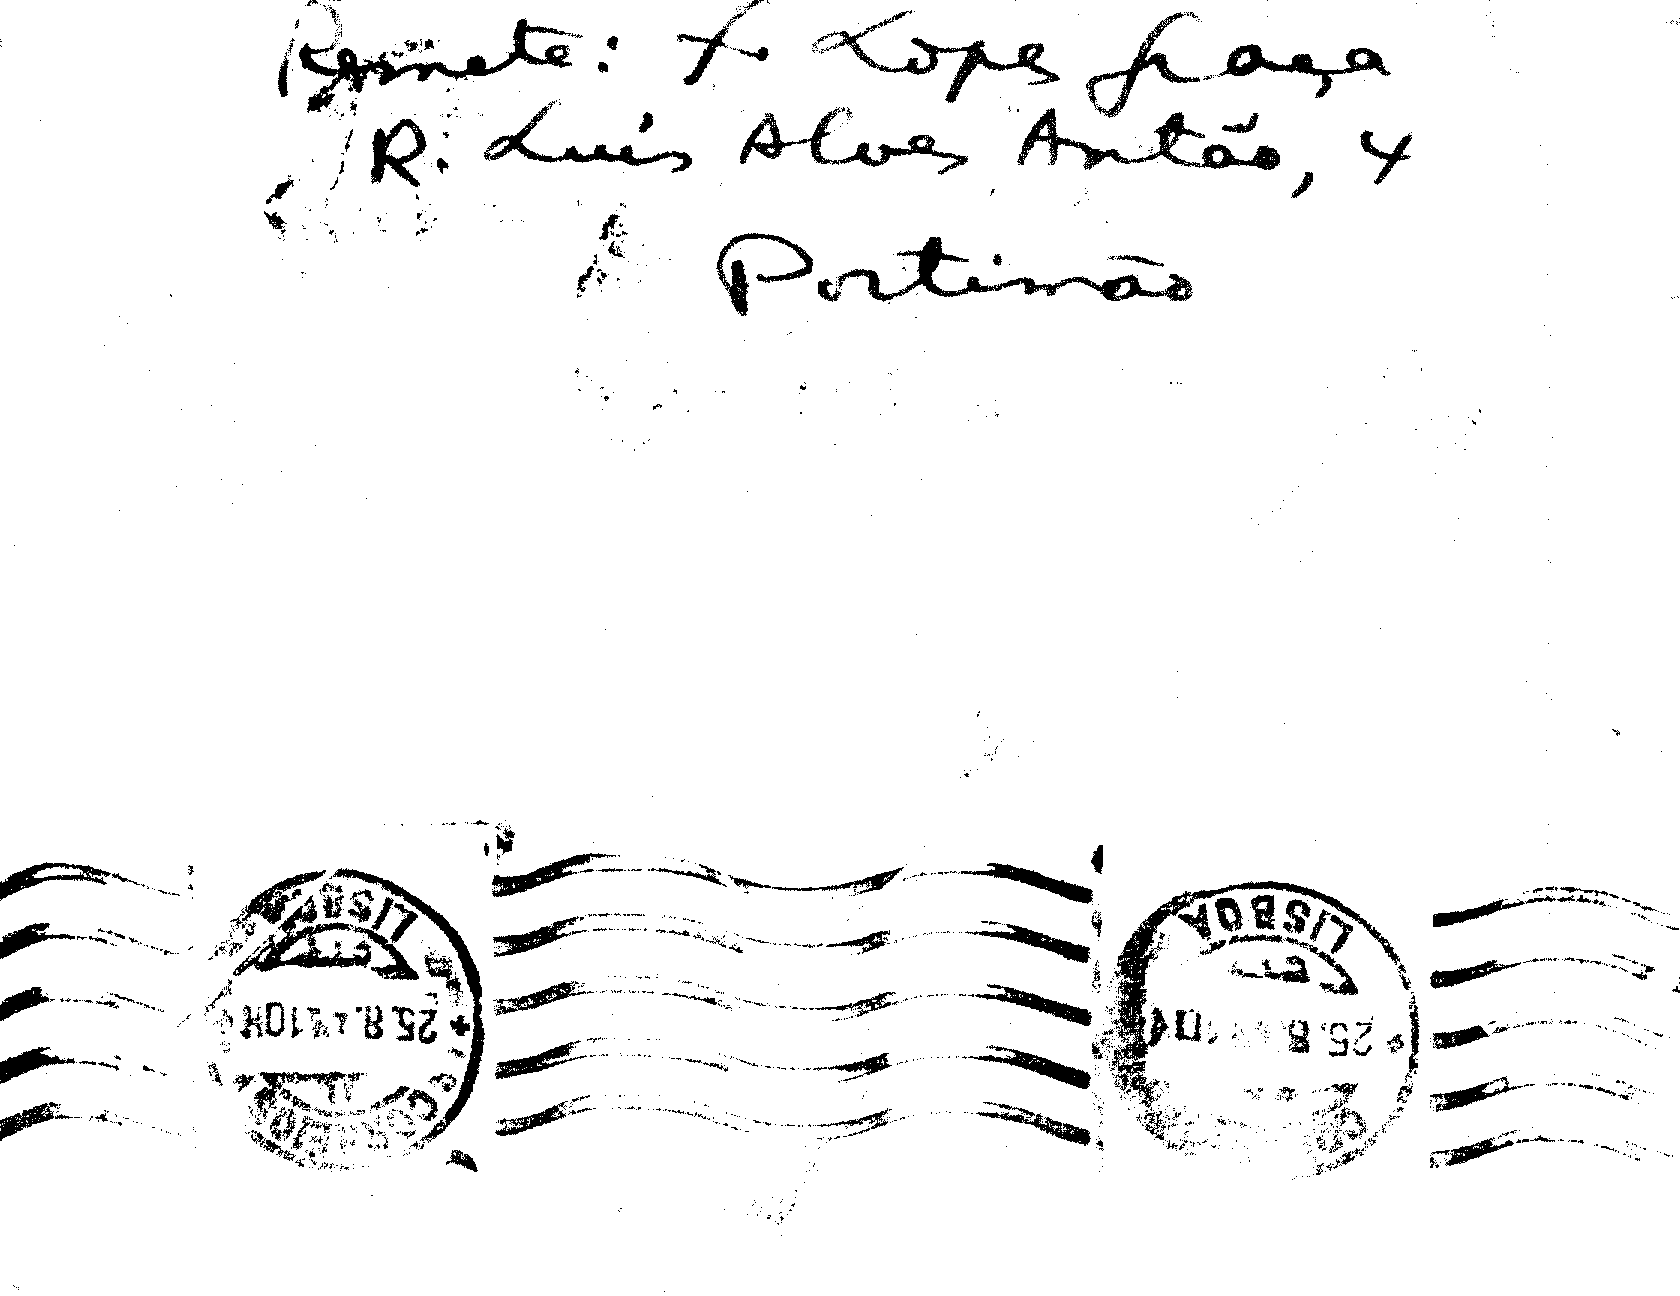 Remete: F. Lopes Graça
R. Luís Alves Antão, 4
Portimão
LISBOA
25.8.
CORREIOS
LISBOA
25.8.